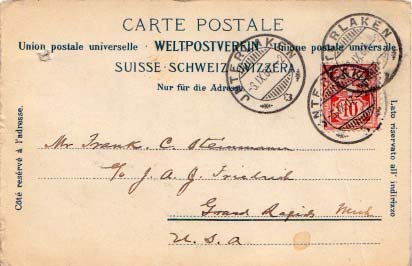 CARTE POSTALE
Union postale universelle · WELTPOSTVEREIN · Unione postale universale
SUISSE·SCHWEIZ·SVIZZERA
Nur für die Adresse
INTERLAKEN
INTERLAKEN
INTERLAKEN
10
Côté resérvé à l'adresse.
Lato riservato all' indirizzo
Mr Frank. C. Steinmann
c/o J. A. J. Friedrich
Grand Rapids Mich
U. S. A